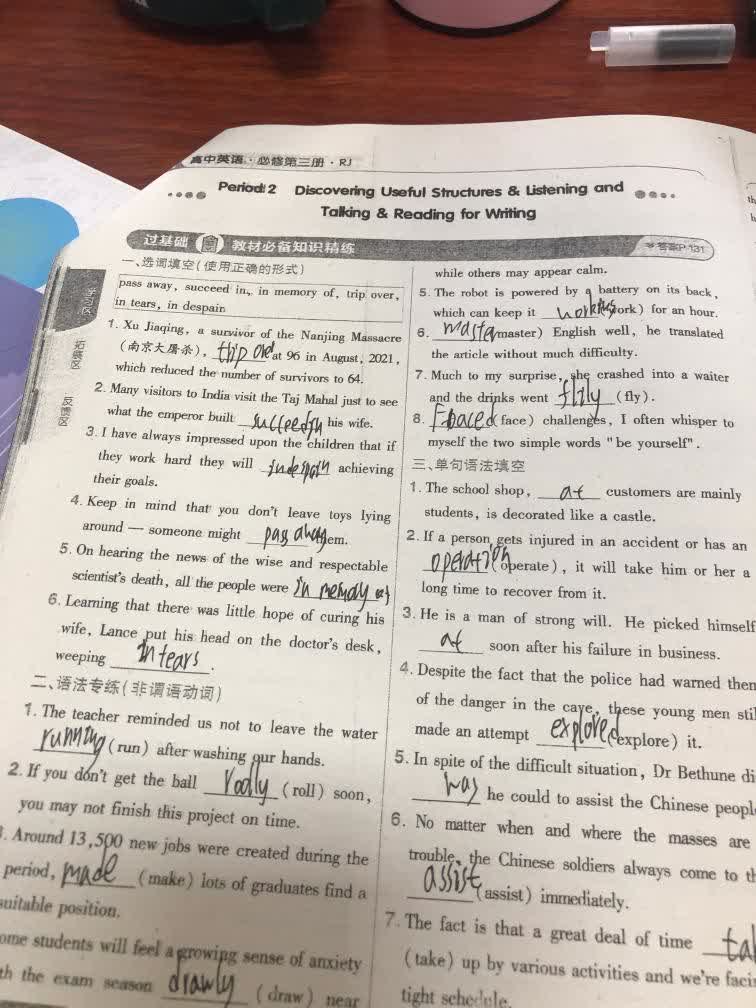 高中英语·必修第三册·RJ
Period 2 Discovering Useful Structures & Listening and
Talking & Reading for Writing
过基础 教材必备知识精练
答案P 131
学习区
拓展区
反馈区
一、选词填空(使用正确的形式)
pass away, succeed in, in memory of, trip over,
in tears, in despair
1. Xu Jiaqing, a survivor of the Nanjing Massacre
(南京大屠杀), trip over at 96 in August, 2021,
which reduced the number of survivors to 64.
2. Many visitors to India visit the Taj Mahal just to see
what the emperor built succeed in his wife.
3. I have always impressed upon the children that if
they work hard they will achieving
their goals.
4. Keep in mind that you don't leave toys lying
around — someone might pass away them.
5. On hearing the news of the wise and respectable
scientist's death, all the people were in memory of
6. Learning that there was little hope of curing his
wife, Lance put his head on the doctor's desk,
weeping in tears.
二、语法专练(非谓语动词)
1. The teacher reminded us not to leave the water
running (run) after washing our hands.
2. If you don't get the ball (roll) soon,
you may not finish this project on time.
3. Around 13,500 new jobs were created during the
period, made (make) lots of graduates find a
suitable position.
ome students will feel a growing sense of anxiety
th the exam season drawly (draw) near
while others may appear calm.
5. The robot is powered by a battery on its back,
which can keep it working (work) for an hour.
6. master (master) English well, he translated
the article without much difficulty.
7. Much to my surprise, she crashed into a waiter
and the drinks went (fly).
8. Faced (face) challenges, I often whisper to
myself the two simple words "be yourself".
三、单句语法填空
1. The school shop, at customers are mainly
students, is decorated like a castle.
2. If a person gets injured in an accident or has an
operation (operate), it will take him or her a
long time to recover from it.
3. He is a man of strong will. He picked himself
at soon after his failure in business.
4. Despite the fact that the police had warned them
of the danger in the cave, these young men stil
made an attempt explored (explore) it.
5. In spite of the difficult situation, Dr Bethune di
was he could to assist the Chinese people
6. No matter when and where the masses are
trouble, the Chinese soldiers always come to th
assist (assist) immediately.
7. The fact is that a great deal of time tak
(take) up by various activities and we're facin
tight schedule.